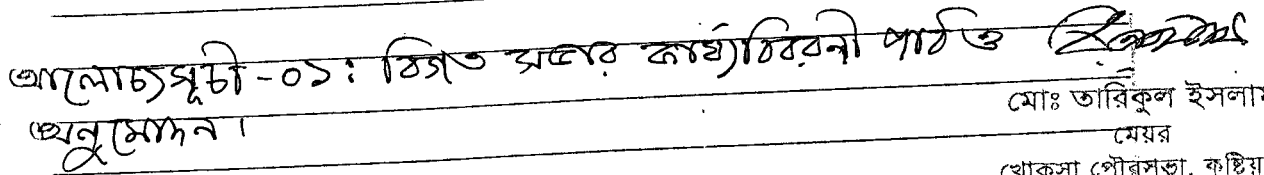 আলোচ্যসূচী -০১: বিগত সভার কার্য্যবিবরনী পাঠ ও
অনুমোদন।
মোঃ তারিকুল ইসলাম
মেয়র
খোকসা পৌরসভা, কুষ্টিয়া